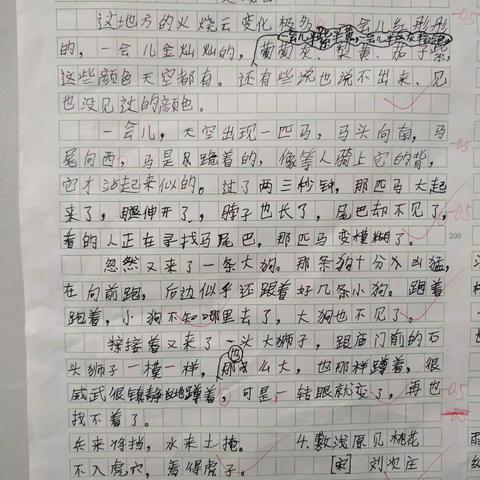 这地方的火烧云变化极多，一会儿红彤彤
的，一会儿金灿灿的，一会儿半紫半黄，一会儿半灰半百合色。葡萄灰、梨黄、茄子紫，
这些颜色天空都有。还有些说也说不出来、见
也没见过的颜色。
一会儿，天空出现一匹马，马头向南，马
尾向西，马是跪着的，像等人骑上它的背，
它才站起来似的。过了两三秒钟，那匹马大起
来了，腿伸开了，脖子也长了，尾巴却不见了，
看的人正在寻找马尾巴，那匹马变模糊了。
200
忽然又来了一条大狗。那条狗十分凶猛，
在向前跑，后边似乎还跟着好几条小狗。跑着
跑着，小狗不知哪里去了，大狗也不见了。
接着又来了一头大狮子，跟庙门前的石
头狮子一模一样，也那么大，也那样蹲着，很
威武很镇静地蹲着，可是一转眼就变了，再也
找不着了。
兵来将挡，水来土掩。 4.敷浅原见桃花
不入虎穴，焉得虎子。 [宋] 刘次庄
-0.5
-0.5
-0.5
-0.5